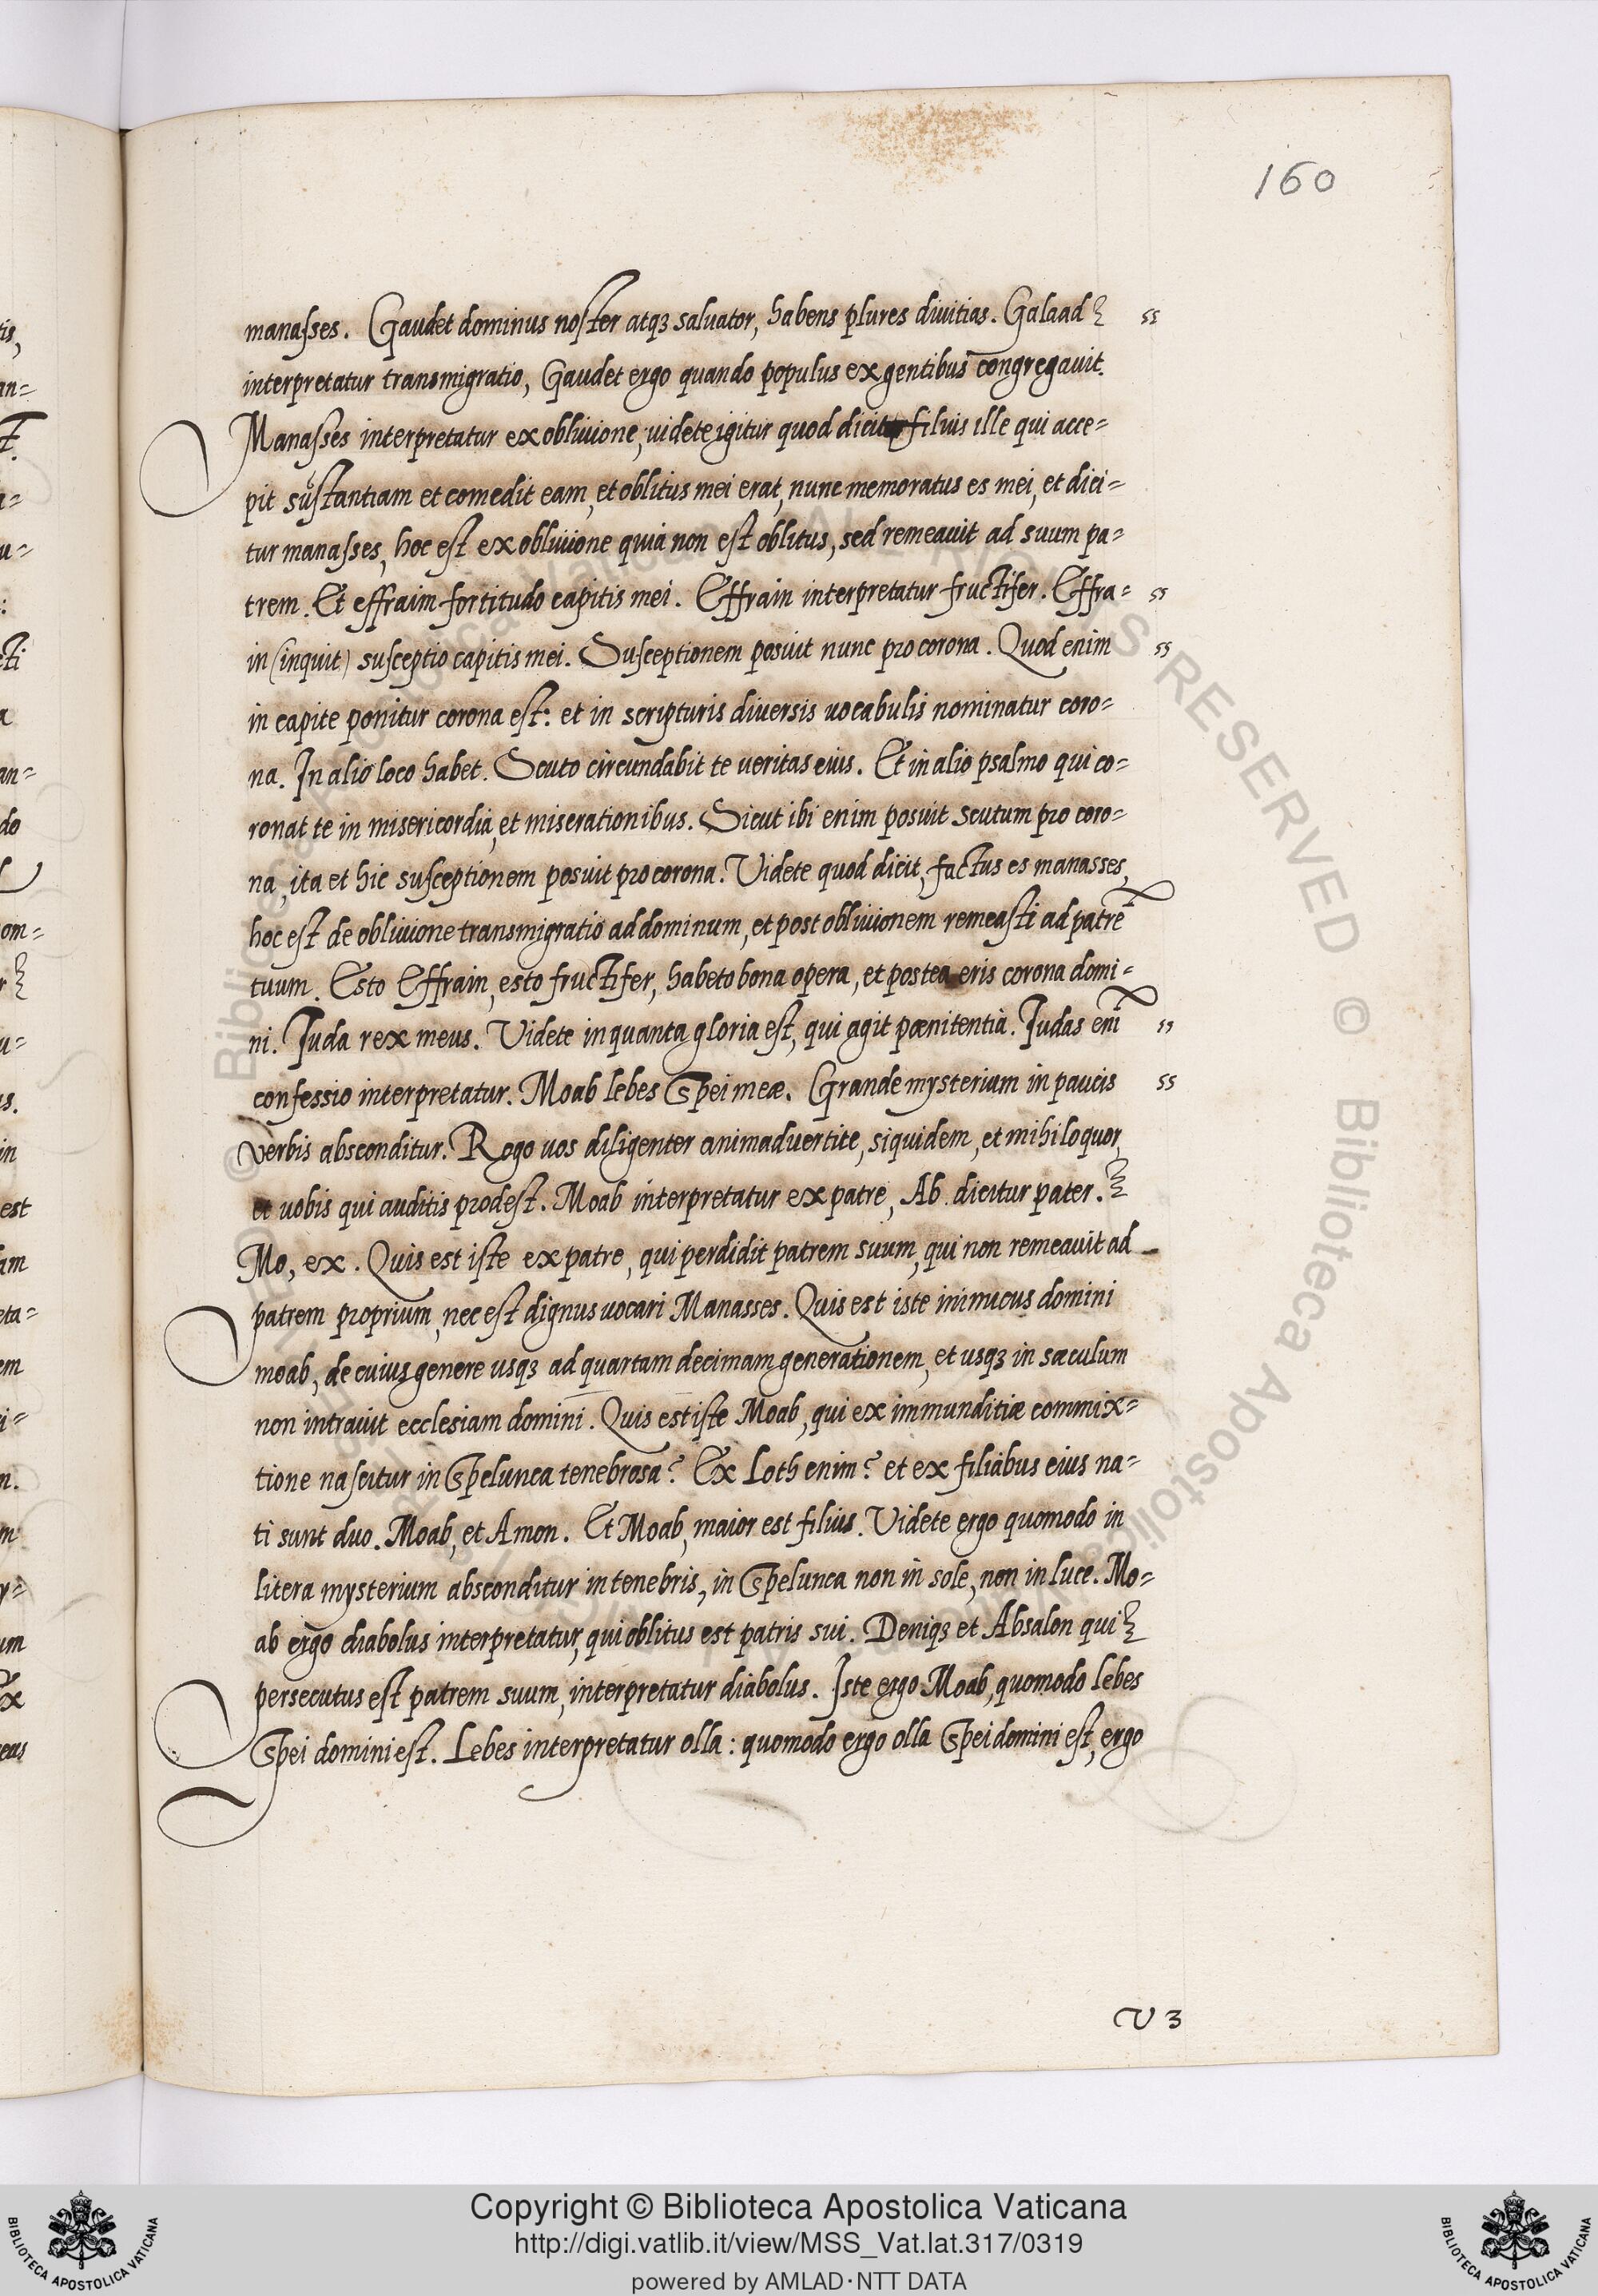 160
manasses. Gaudet dominus noster atqꝫ saluator, habens plures diuitias. Galaad
interpretatur transmigratio, Gaudet ergo quando populus ex gentibus congregauit.
Manasses interpretatur ex obliuione, uidete igitur quod dicit filius ille qui acce=
pit sustantiam et comedit eam, et oblitus mei erat, nunc memoratus es mei, et dici=
tur manasses, hoc est ex obliuione quia non est oblitus, sed remeauit ad suum pa=
trem. Et effraim fortitudo capitis mei. Effrain interpretatur fructifer. Effra=
in (inquit) susceptio capitis mei. Susceptionem posuit nunc pro corona. Quod enim
in capite ponitur corona est: et in scripturis diuersis uocabulis nominatur coro=
na. In alio loco habet. Scuto circundabit te ueritas eius. Et in alio psalmo qui co=
ronat te in misericordia, et miserationibus. Sicut ibi enim posuit scutum pro coro=
na, ita et hic susceptionem posuit pro corona. Videte quod dicit, factus es manasses,
hoc est de obliuione transmigratio ad dominum, et post obliuionem remeasti ad patrē
tuum. Esto Effrain, esto fructifer, habeto bona opera, et postea eris corona domi=
ni. Iuda rex meus. Videte in quanta gloria est, qui agit pænitentiā. Iudas enī
confessio interpretatur. Moab lebes spei meæ. Grande mysterium in paucis
verbis absconditur. Rogo uos diligenter animaduertite, siquidem, et mihi loquor,
et uobis qui auditis prodest. Moab interpretatur ex patre, Ab dicitur pater.
Mo, ex. Quis est iste ex patre, qui perdidit patrem suum, qui non remeauit ad
patrem proprium, nec est dignus uocari Manasses. Quis est iste inimicus domini
moab, de cuius genere usqꝫ ad quartam decimam generationem, et usqꝫ in sæculum
non intrauit ecclesiam domini. Quis est iste Moab, qui ex immunditiæ commix=
tione nascitur in spelunca tenebrosa? Ex Loth enim? et ex filiabus eius na=
ti sunt duo. Moab, et Amon. Et Moab, maior est filius. Videte ergo quomodo in
litera mysterium absconditur in tenebris, in spelunca non in sole, non in luce. Mo=
ab ergo diabolus interpretatur, qui oblitus est patris sui. Deniqꝫ et Absalon qui
persecutus est patrem suum, interpretatur diabolus. Iste ergo Moab, quomodo lebes
spei domini est. Lebes interpretatur olla: quomodo ergo olla spei domini est, ergo
V 3
Copyright © Biblioteca Apostolica Vaticana
http://digi.vatlib.it/view/MSS_Vat.lat.317/0319
powered by AMLAD·NTT DATA
BIBLIOTECA APOSTOLICA VATICANA
BIBLIOTECA APOSTOLICA VATICANA